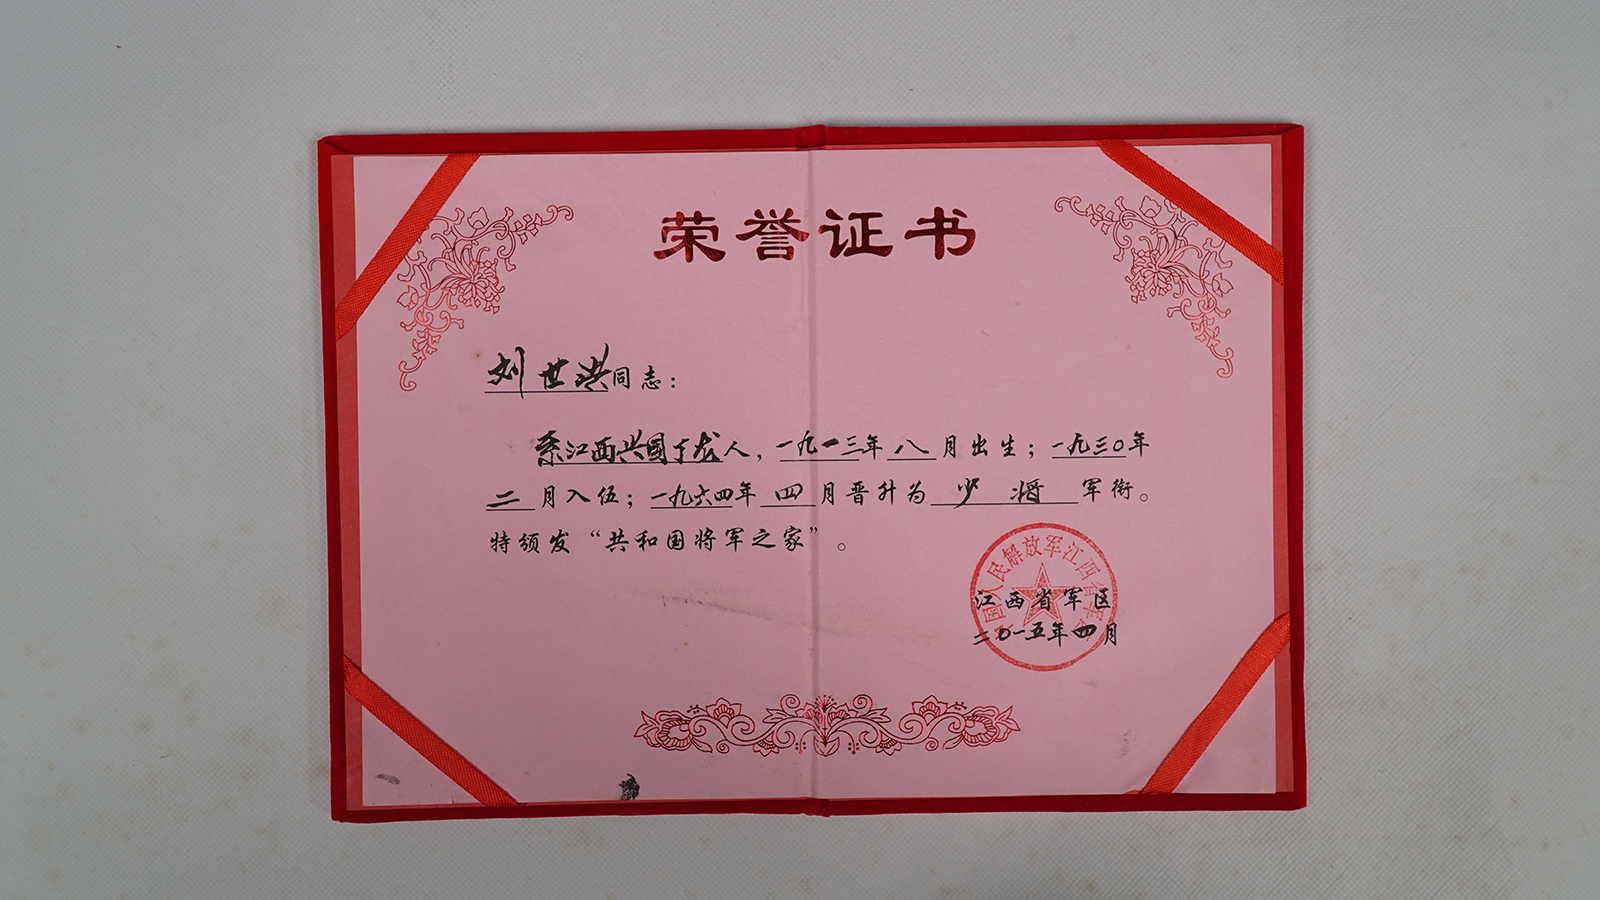 荣誉证书
刘世洪同志：
系江西兴國丁龙人，一九一三年八月出生；一九三〇年
二月入伍；一九六四年四月晋升为少将军衔。
特颁发“共和国将军之家”。
江西省军区
二〇一五年四月